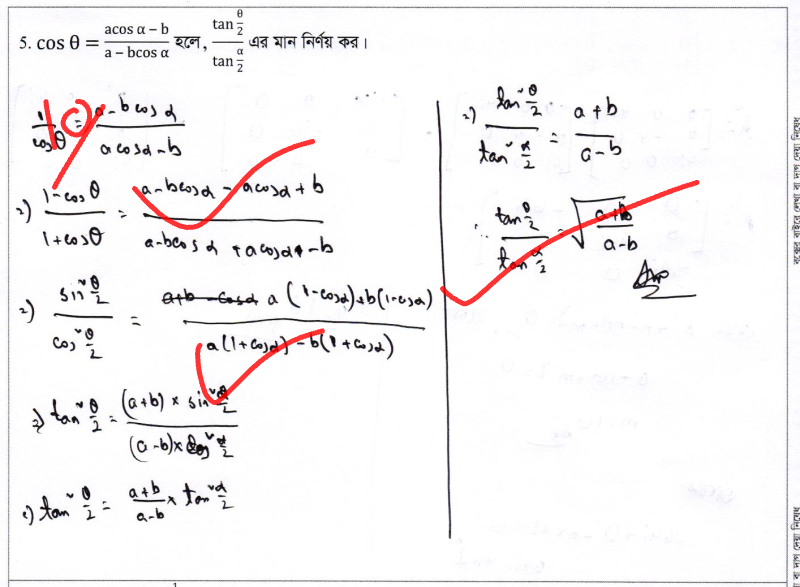 5. cos θ = (acos α − b)/(a − bcos α) হলে, (tan θ/2)/(tan α/2) এর মান নির্ণয় কর।
10
1/cosθ = (a-bcosα)/(acosα-b)
⇒) (1-cosθ)/(1+cosθ) = (a-bcosα - acosα + b)/(a-bcosα + acosα - b)
⇒) (sin² θ/2)/(cos² θ/2) = (a(1-cosα)+b(1-cosα))/(a(1+cosα) - b(1+cosα))
⇒) tan² θ/2 = ((a+b) × sin² α/2)/((a-b) × cos² α/2)
⇒) tan² θ/2 = (a+b)/(a-b) × tan² α/2
⇒) (tan² θ/2)/(tan² α/2) = (a+b)/(a-b)
∴ (tan θ/2)/(tan α/2) = √((a+b)/(a-b))
Ans
বক্সের বাইরে লেখা বা দাগ দেয়া নিষেধ
বা দাগ দেয়া নিষেধ
1